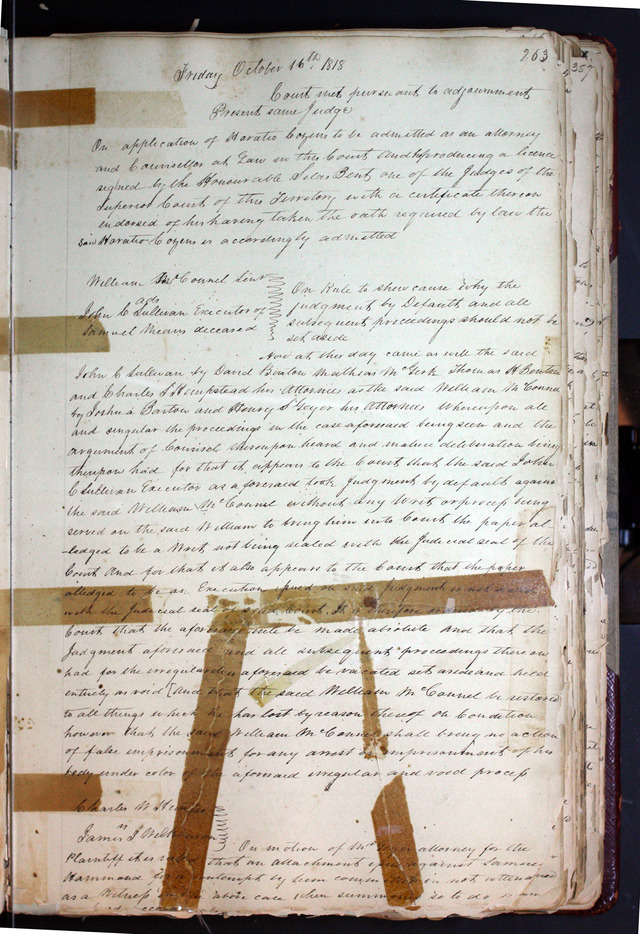 263
357
Friday October 16th, 1818
Court met pursuant to adjournment
Present same Judge
On application of Horatio Cozens to be admitted as an attorney
and Counsellor at Law in this Court And producing a licence
signed by the Honourable Silas Bent, one of the Judges of the
Superior Court of this Territory with a certificate thereon
endorsed of his having taken the oath required by law the
said Horatio Cozens is accordingly admitted
William McConnel Senr
ads
John C Sullivan Executor of
Samuel Means deceased
On Rule to shew cause why the
judgment by Default and all
subsequent proceedings should not be
set aside
Now at this day came as well the said
John C Sullivan by David Barton Mathias McGirk Thomas H Benton
and Charles S Hempstead his Attornies as the said William McConnel
by Joshua Barton and Henry S Geyer his Attornies Whereupon all
and singular the proceedings in the case aforesaid being seen and the
argument of Councel thereupon heard and mature deliberation being
thereupon had for that it appears to the Court that the said John
C Sullivan Executor as aforesaid took judgment by default against
the said William McConnel without any Writ or process being
served on the said William to bring him into Court the paper al-
ledged to be a Writ not being sealed with the Judicial seal of the
Court And for that it also appears to the Court that the paper
alledged to be an Execution issued on said Judgment is not
with the Judicial seal of said Court. It is therefore by the
Court that the aforesaid rule be made absolute and that the
Judgment aforesaid and all subsequent proceedings thereon
had for the irregularities aforesaid be vacated set aside and held
entirely as void And that the said William McConnel be restored
to all things which he has lost by reason thereof on Condition
however that the said William McConnel shall bring no action
of false imprisonment for any arrest or imprisonment of his
body under color of the aforesaid irregular and void process
Charles W Hunter
vs
James J Wilkinson
On motion of Mr Geyer attorney for the
Plaintiff it is ruled that an attachment issue against Samuel
Hammond for a contempt by him in not attending
as a Witness in the above case when summoned so to do